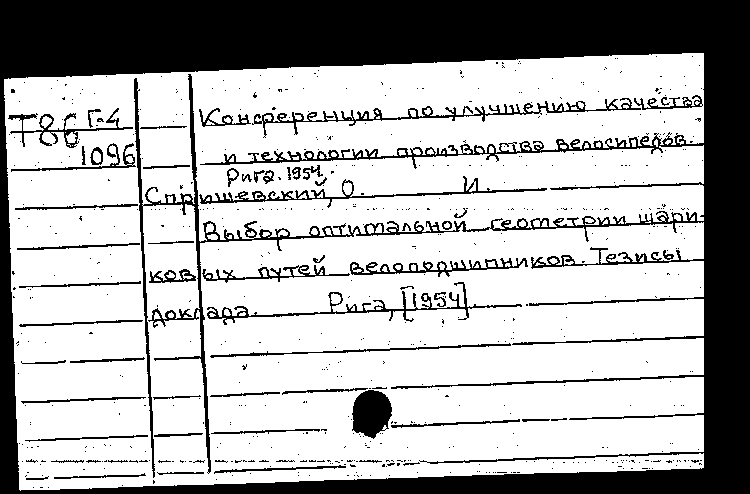 Г-4 Конференция по улучшению качества
Т86
1096 и технологии производства велосипедов.
Рига. 1954.
Спришевский, О. И.
Выбор оптимальной геометрии шари-
ковых путей велоподшипников. Тезисы
доклада. Рига, [1954].